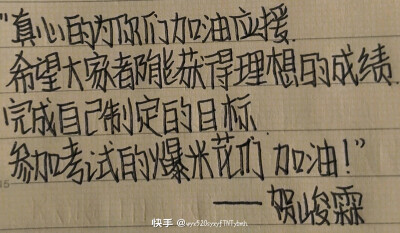 "真心的为你们加油应援
希望大家都能获得理想的成绩
完成自己制定的目标
参加考试的爆米花们 加油!"
——贺峻霖
快手